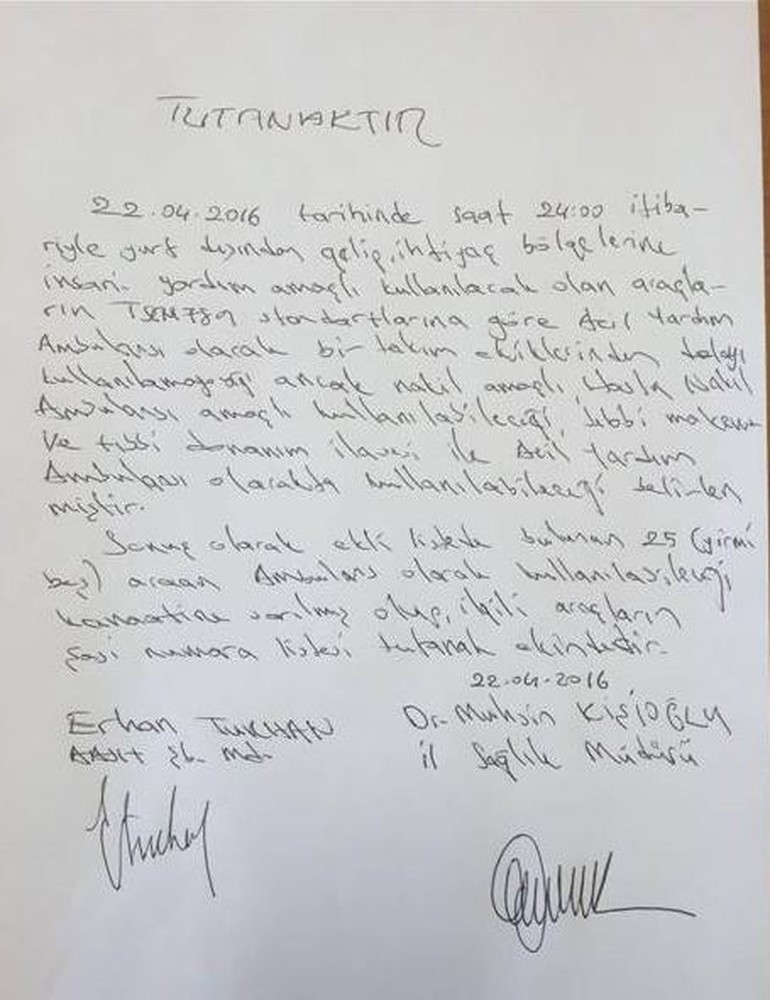 TUTANAKTIR
22.04.2016 tarihinde saat 24:00 itiba-
riyle yurt dışından gelip, ihtiyaç bölgelerine
insani yardım amaçlı kullanılacak olan araçla-
rın TSEM789 standartlarına göre Acil Yardım
Ambulansı olarak bir takım eksiklerinden dolayı
kullanılamayacağı ancak nakil amaçlı Hasta Nakil
Ambulansı amaçlı kullanılabileceği, tıbbi malzeme
ve tıbbi donanım ilavesi ile Acil Yardım
Ambulansı olarakta kullanılabileceği belirlen
miştir.
Sonuç olarak ekli listede bulunan 25 (yirmi
beş) aracın Ambulans olarak kullanılabileceği
kanaatine varılmış olup, ilgili araçların
şasi numara listesi tutanak ekindedir.
22.04.2016
Erhan TURHAN
Şb. Md.
Dr. Muhsin KİŞİOĞLU
il Sağlık Müdürü